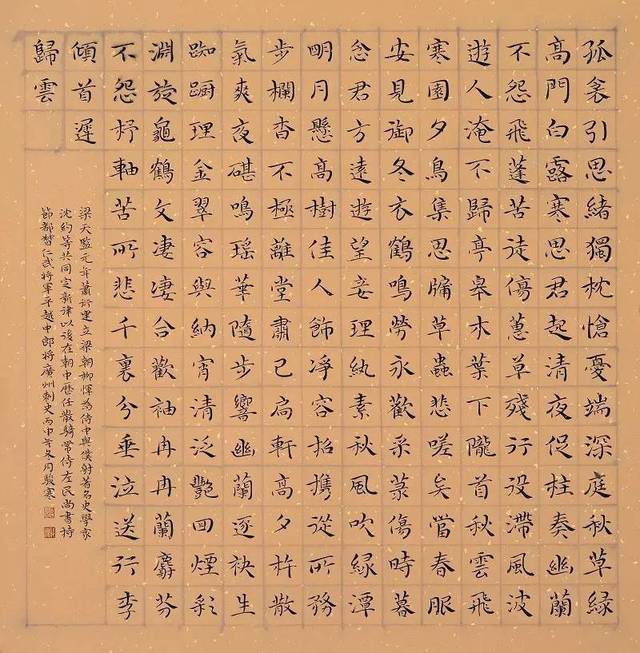 孤衾引思緒獨枕愴憂端深庭秋草緑
高門白露寒思君起清夜促柱奏幽蘭
不怨飛蓬苦徒傷蕙草殘行役滯風波
遊人淹不歸亭皋木葉下隴首秋雲飛
寒園夕鳥集思牖草蟲悲嗟矣當春服
安見御冬衣鶴鳴勞永歎采菉傷時暮
念君方遠遊望妾理紈素秋風吹緑潭
明月懸高樹佳人飾凈容招攜從所務
步欄杳不極離堂肅已扃軒高夕杵散
氣爽夜碪鳴瑶華隨步響幽蘭逐袂生
踟躕理金翠容與納宵清泛艷回煙彩
淵旋龜鶴文凄凄合歡袖冉冉蘭麝芬
不怨杼軸苦所悲千裏兮垂泣送行李
傾首遲
歸雲
梁天監元年蕭衍建立梁朝柳惲為侍中與僕射著名史學家
沈約等共同定新律以後在朝中歷任散騎常侍左民尚書持
節都督仁武將軍平越中郎將廣州刺史丙申年冬月駿寒